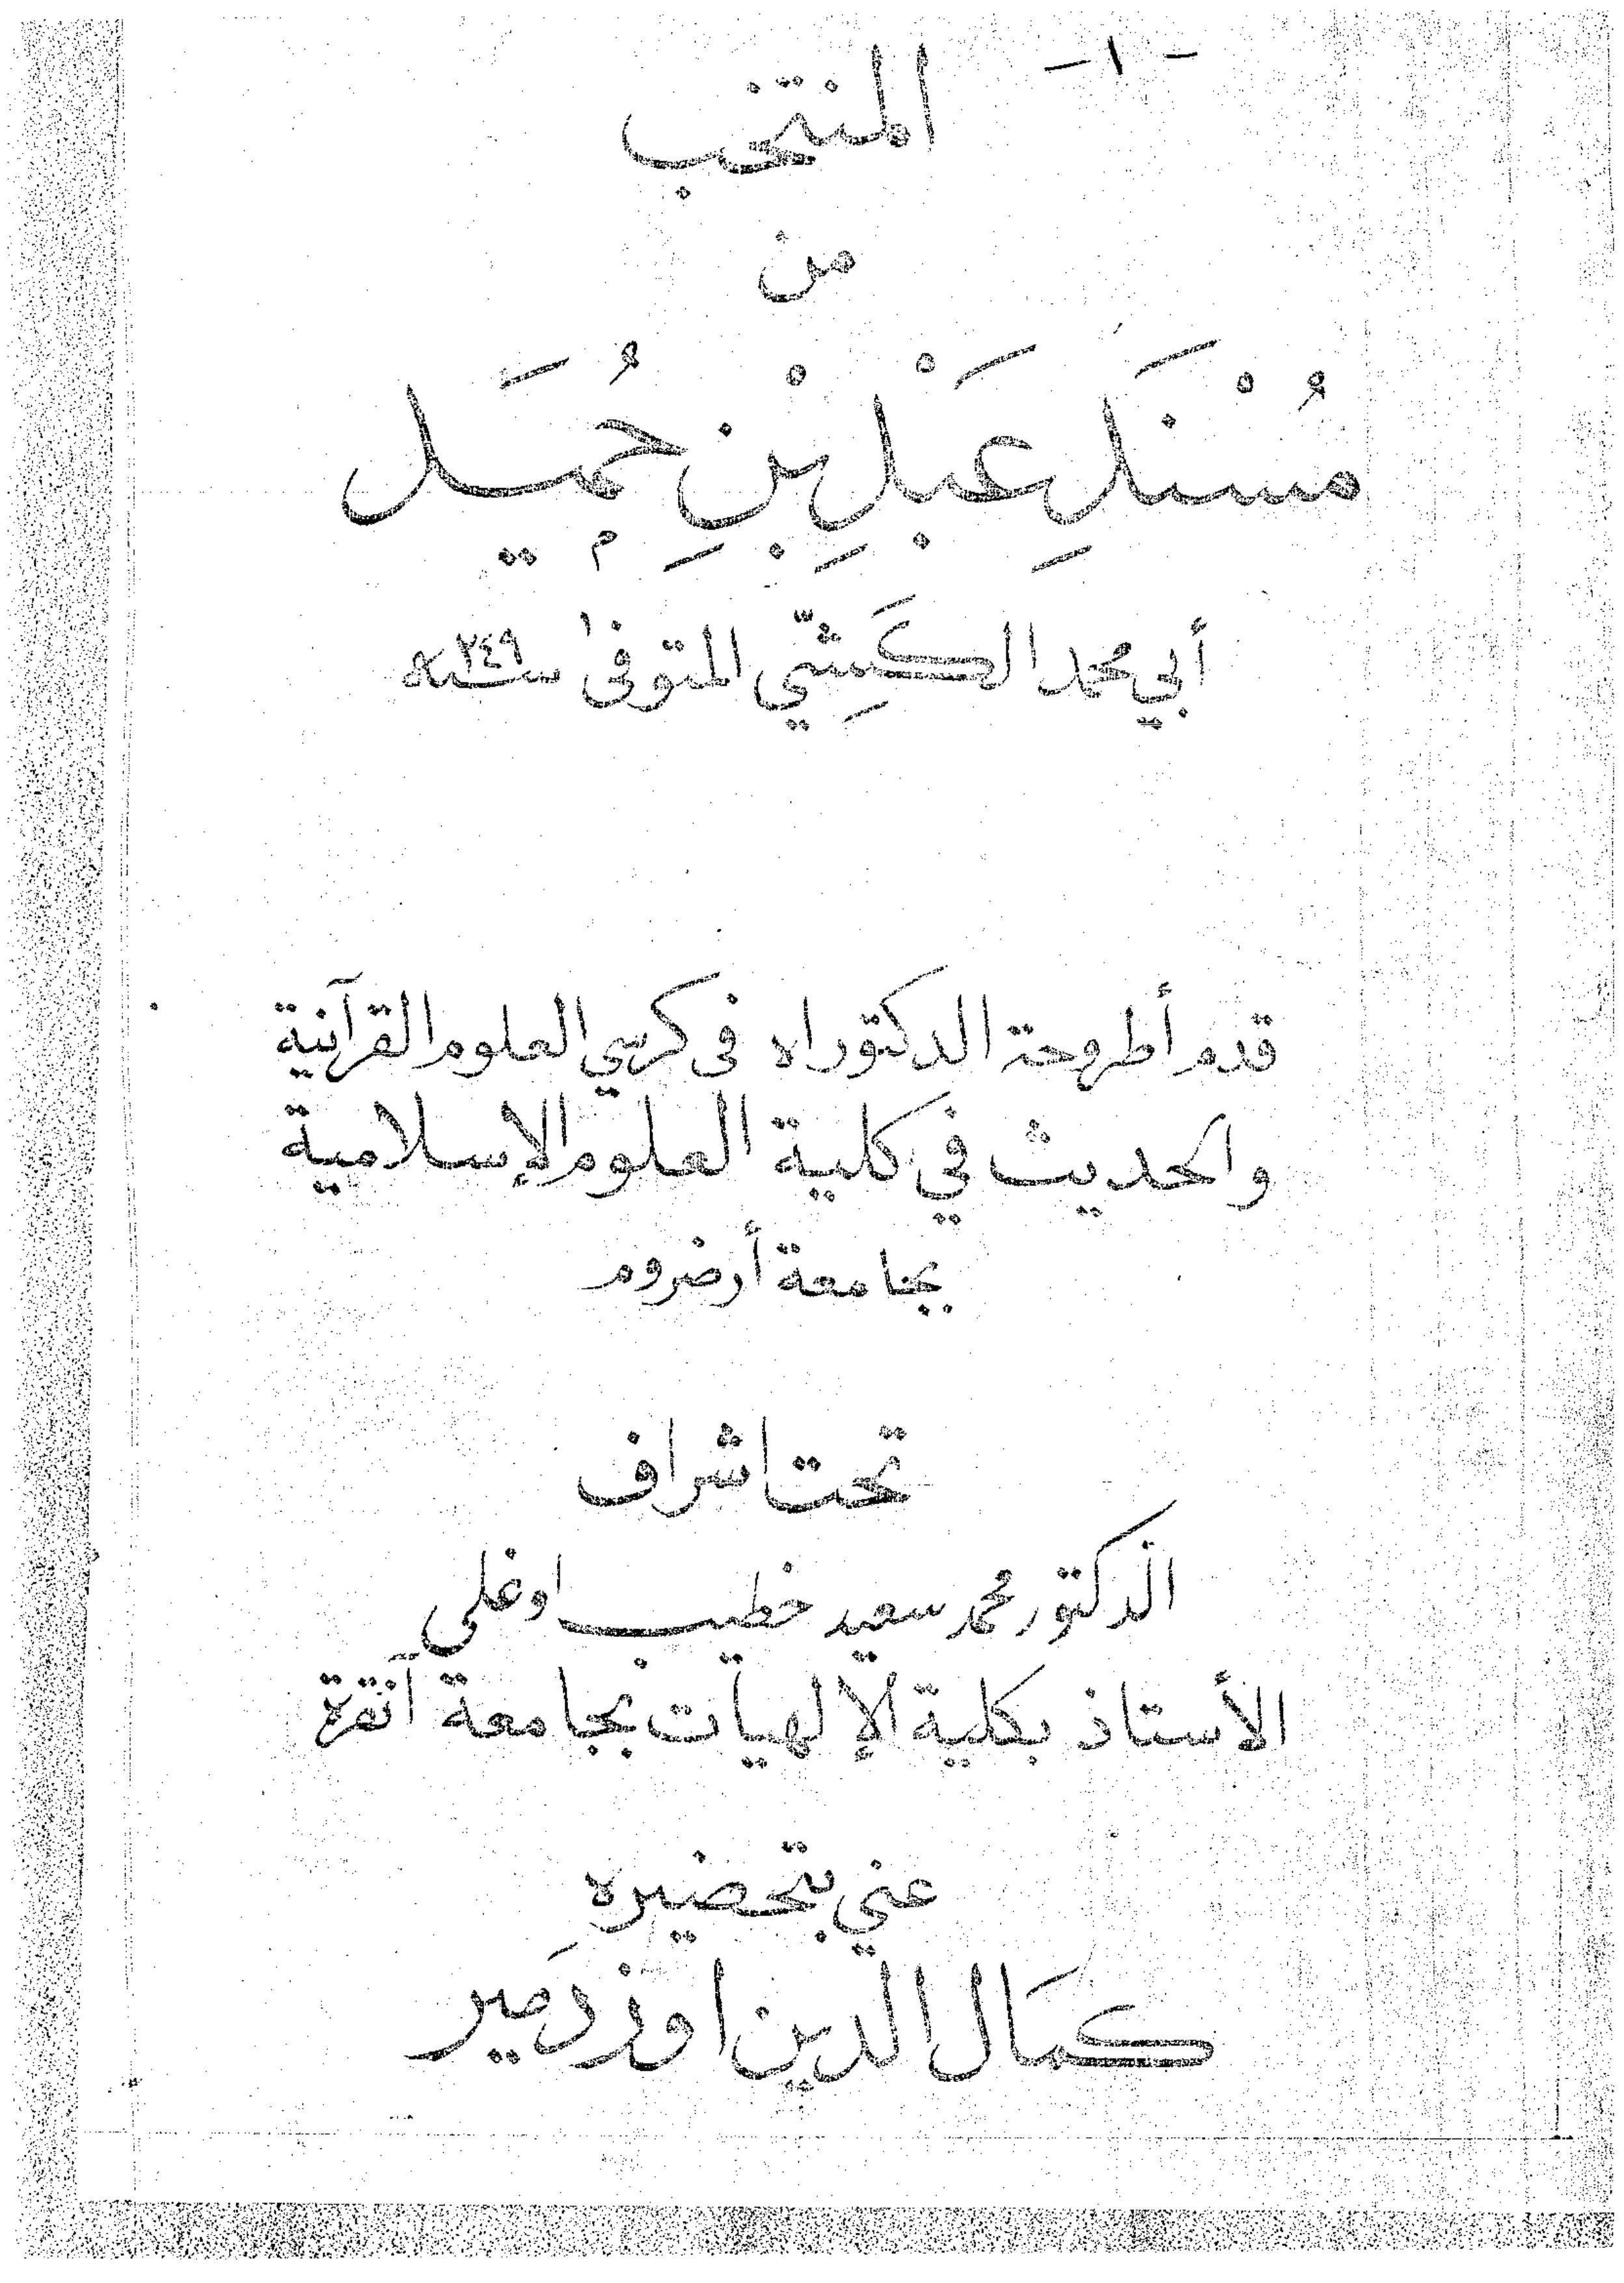 - ١ -
المنتخب
من
مُسْنَدِ عَبْدِ بْنِ حُمَيَد
أبي محمد الكَشِّي المتوفىٰ سنة ٢٤٩
قدم أطروحة الدكتوراه فى كرسي العلوم القرآنية
والحديث في كلية العلوم الإسلامية
بجامعة أرضروم
تحت اشراف
الدكتور محمد سعيد خطيب اوغلى
الأستاذ بكلية الإلهيات بجامعة آنقرة
عني بتحضيره
كمَال الدين اوزدَمير